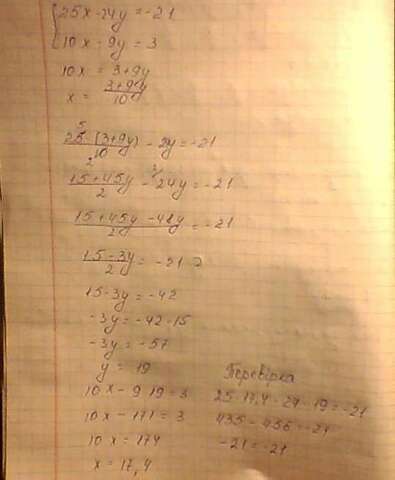 25x-24y=-21
10x-9y=3
10x=3+9y
x=3+9y/10
25·(3+9y)/10-2y=-21
15+45y/2-24y=-21
15+45y-48y/2=-21
15-3y/2=-21
15-3y=-42
-3y=-42-15
-3y=-57
y=19
10x-9·19=3
10x-171=3
10x=174
x=17,4
Перевірка
25·17,4-24·19=-21
435-456=-21
-21=-21